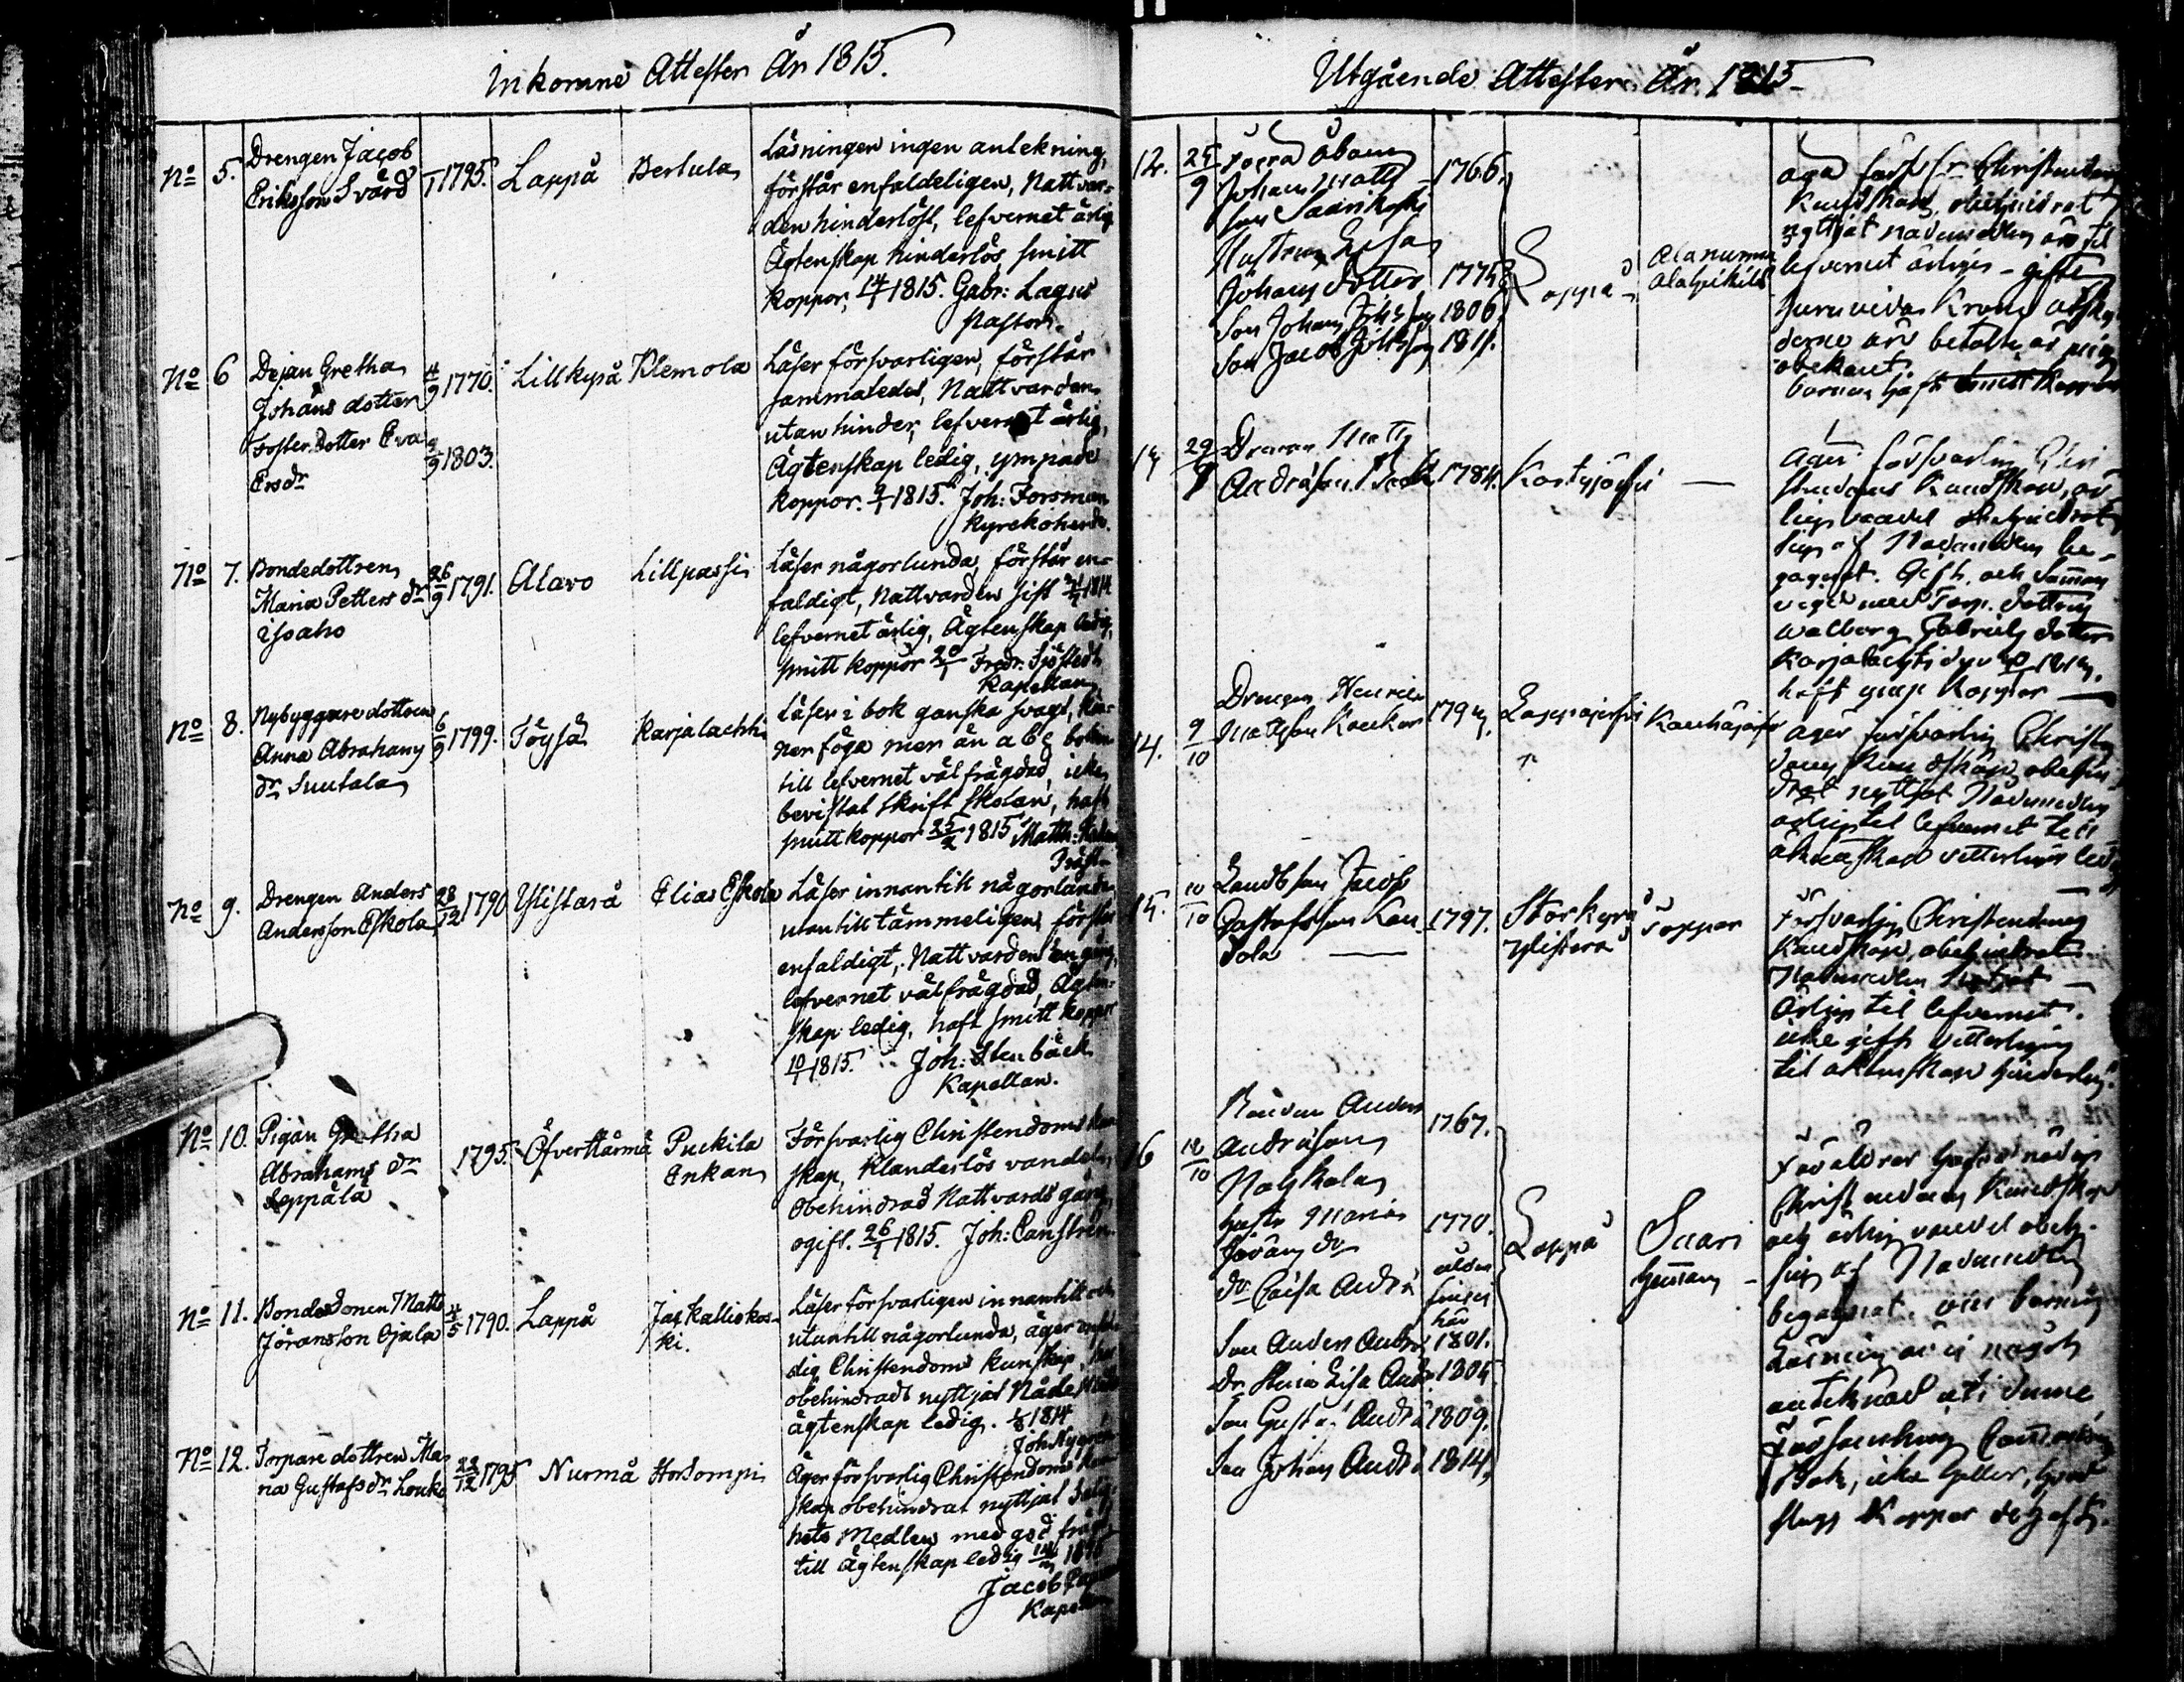 Inkomne Attester År 1815.
No 5. Drengen Jacob
Eriksson Svärd
1795. Lappå Bertula
Läsningen ingen antekning,
förstår enfaldeligen, Nattvar-
den hinderlöst, lefvernet ärlig
Ägtenskap hinderlös, smitt
koppor, 14/1 1815. Gabr: Lagus
Pastor.
No 6 Dejan Gretha
Johans dotter
Foster Dotter Eva
Ersdr
4/9 1770.
9/9 1803.
Lillkyrå Klemola
Läser försvarligen, förstår
sammaledes, Nattvarden
utan hinder, lefvernet ärlig,
Ägtenskap ledig, ympade
koppor. 9/1 1815. Joh: Forsman
Kyrckoherde.
No 7. Bondedottren
Maria Petters dr
Isoaho
26/9 1791. Alavo Lillpassi
Läser någorlunda, förstår en-
faldigt, Nattvarden sist 1814
lefvernet ärlig, Ägtenskap ledig,
smitt koppor 20/1 Fredr: Sjöstedt
Kapellan
No 8. Nybyggare dottren
Anna Abrahams
dr Suutala
6/9 1799. Töysä Karjalachti
Läser i bok ganska svagt, kän-
ner föga mer än a b c boken
till lefvernet välfrägdad, icke
bevistat skrift skolan, haft
smitt koppor 25/2 1815 Matth:
Präst.
No 9. Drengen Anders
Andersson Eskola
28/12 1790 Ylistarå Elias Eskola
Läser innantill någorlunda
utantill tämmeligen, förstår
enfaldigt, Nattvarden en gång,
lefvernet välfrägdad, Ägten-
skap ledig, haft smitt koppor
10/1 1815. Joh: Stenbäck
Kapellan.
No 10. Pigan Gretha
Abrahams dr
Seppälä
1795. Öfverttärmä Puckila
Enkan
Försvarlig Christendoms kun
skap, Klanderlös vandel,
obehindrad Nattvards gång,
ogift. 26/1 1815. Joh: Canstrén
No 11. Bondesonen Matts
Jöransson Ojala
4/5 1790. Lappå Jac Kalliokos-
ki.
Läser försvarligen innantill och
utantill någorlunda, äger enfal
dig Christendoms kunskap, har
obehindradt nyttjat Nåde Medl
ägtenskap ledig. 1814
Joh Nygren
No 12. Torpare dottren Ma
na Gustafsdr Louko
22/12 1795 Nurmå Hordompi
Äger försvarlig Christendoms kun
skap obehindrat nyttjat Salig-
hets Medlen med god frägd
till Ägtenskap ledig
Jacob
Kapellan
Utgående Attester År 1815
12. 25/9
Johan Matts
son Saarikoski
1766.
Hustrun Lisa
Johans dotter 1775
Son Johan Johsson 1806
Son Jacob Johsson 1811.
Lappå Alanurmo
äga försv. Christendoms
Kundskap, obehindrat
nyttjat nådemedlen äro til
lefvernet ärlige - gifte
huruvida Krono utskyl
derne äro betalte är mig
obekant.
barnen haft Koppor
29/9 Matts
Andersson 1784. Kortesjärfvi
Äger försvarlig Chri-
stendoms Kundskap, är
lig vandel obehindrat
sig af Nådemedlen be-
gagnat. Gift och Samman
viged med Torp. dottren
Walborg Gabriels dotter
Karjalachti
haft ymp Koppor
14. 9/10 Drengen Henric
Mattsson Kaukas 1794. Lappajerfvi Kauhajärfvi
äger försvarlig Christen
doms Kundskap obehin
drat nyttjat Nådemedlen
ärlig til lefvernet till
äktenskap vetterligen ledig
15. 10/10 Landbson Jacob
Gustafsson Kan
dola
1797. Storkyro Toppar
Ylistaro
Försvarlig Christendoms
Kundskap, obehindrat
Nådemedlen nyttjat
ärlig til lefvernet.
icke gift vetterligen
til äktenskap hinderlös.
16 12/10 Bonden Anders
Andersson
1767.
Hustr Maria
Jörans dr 1770.
dr Caisa Andrs ålder
finnes
här
Son Anders Andrs 1801.
Dr Maria Lisa Andr. 1805
Son Gustaf Andrs 1809.
Son Johan Andrs 1814,
Lappå Saari
Hemman
Föräldrar hafva nödig
Christendoms Kundskap
och ärlig vandel obeh.
sig af Nådemedlen
begagnat. om barnens
Läsning är ej något
antecknad uti denne
Församlings
Bok, icke heller, hvad
slags Koppor de haft.